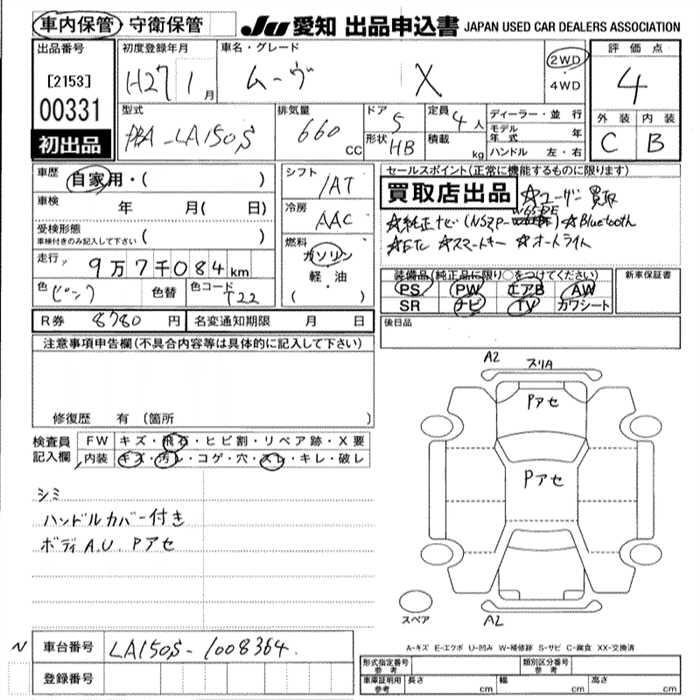 車内保管・守衛保管 JU 愛知 出品申込書 JAPAN USED CAR DEALERS ASSOCIATION
出品番号 初度登録年月 車名・グレード 評価点
[2153] H27 1月 ムーヴ X 2WD・4WD 4
00331
型式 排気量 ドア 定員 ディーラー・並行 外装 内装
初出品 DBA-LA150S 660cc 5 4人 モデル年式 年 C B
形状 HB 積載 kg ハンドル 左・右
車歴 自家用・( ) シフト IAT セールスポイント(正常に機能するものに限ります)
買取店出品 ☆ユーザー買取
車検 年 月( 日) 冷房 AAC ☆純正ナビ(NSZP-W65DE) ☆Bluetooth
受検形態 車検付きのみ記入して下さい ( ) ☆ETC ☆スマートキー ☆オートライト
走行 9万7千084km 燃料 ガソリン 軽・油 ( )
装備品(純正品に限り○をつけてください) 新車保証書
色 ピンク 色替 色コード T22 PS PW エアB AW
SR ナビ TV カワシート
R券 8780円 名変通知期限 月 日 後日品
注意事項申告欄(不具合内容等は具体的に記入して下さい)
修復歴 有 (箇所
検査員記入欄 FW キズ・飛石・ヒビ割・リペア跡・X要
内装 キズ・汚レ・コゲ・穴・スレ・キレ・破レ
シミ
ハンドルカバー付き
ボディA.U. Pアセ
A2 スリA
Pアセ
Pアセ
スペア A2
A-キズ E-エクボ U-凹み W-補修跡 S-サビ C-腐食 XX-交換済
N 車台番号 LA150S-1008364
登録番号
型式指定番号 参考 類別区分番号 参考
車庫証明用 参考 長さ cm 幅 cm 高さ cm